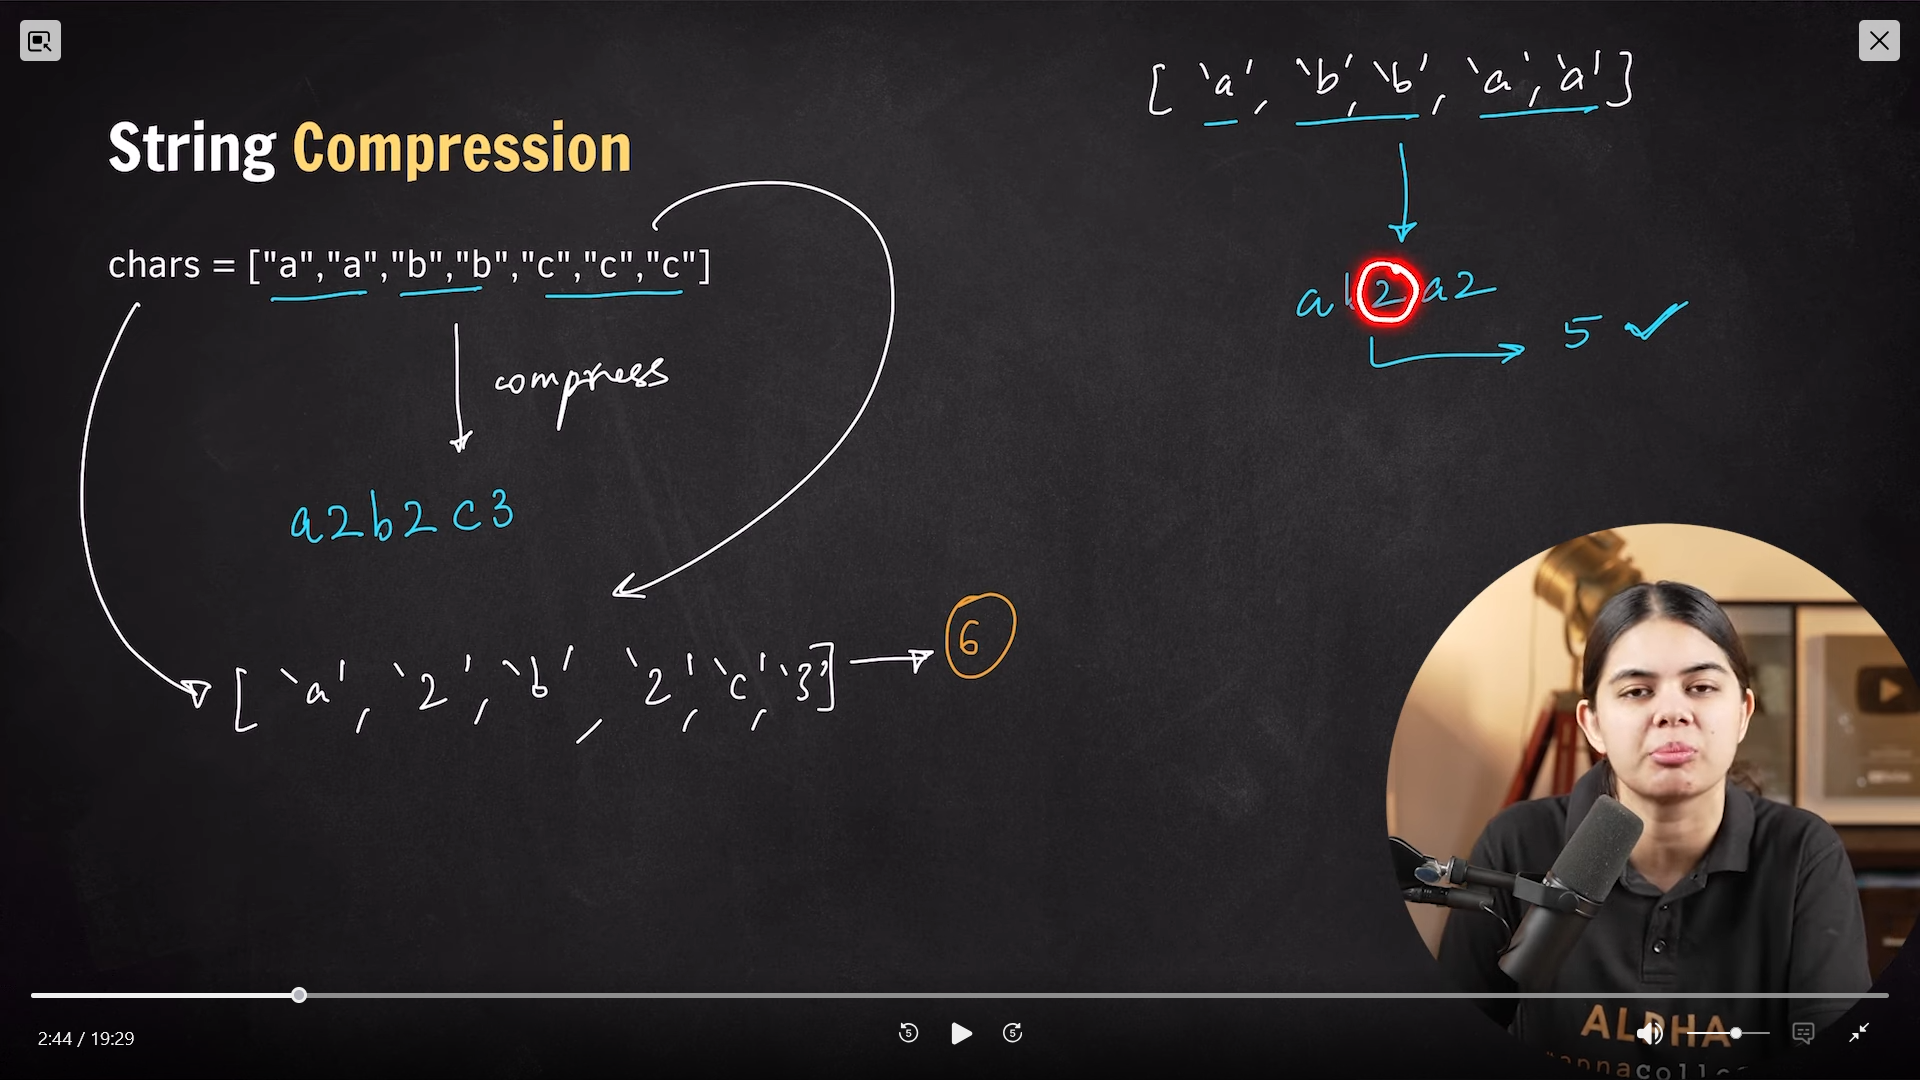 String Compression
chars = ["a","a","b","b","c","c","c"]
compress
a2b2c3
[ 'a', '2', 'b', '2', 'c', '3' ] → 6
[ 'a', 'b', 'b', 'a', 'a' ]
ab2a2
5 ✓
ALPHA
2:44 / 19:29
5
5